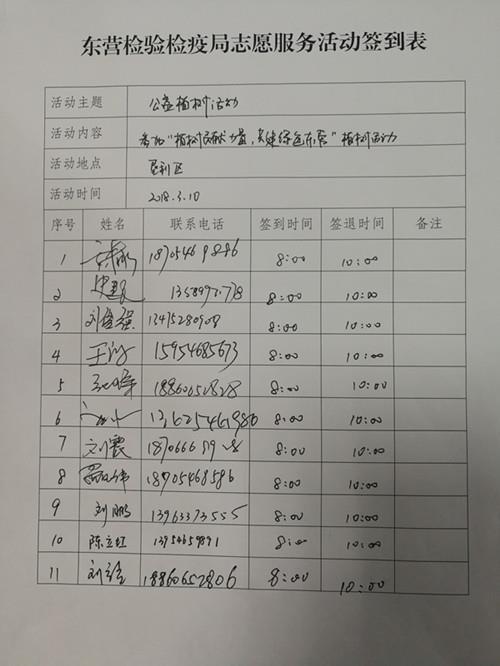 东营检验检疫局志愿服务活动签到表
活动主题 公益植树活动
活动内容 参加"植树贡献力量,共建绿色东营"植树活动
活动地点 垦利区
活动时间 2018.3.10
序号 姓名 联系电话 签到时间 签退时间 备注
1 18705469886 8:00 10:00
2 8:00 10:00
3 刘俊强 13475280908 8:00 10:00
4 15954685673 8:00 10:00
5 18860652828 8:00 10:00
6 13625461986 8:00 10:00
7 刘震 8:00 10:00
8 18705468586 8:00 10:00
9 刘鹏 13963373555 8:00 10:00
10 陈立虹 8:00 10:00
11 18860652806 8:00 10:00